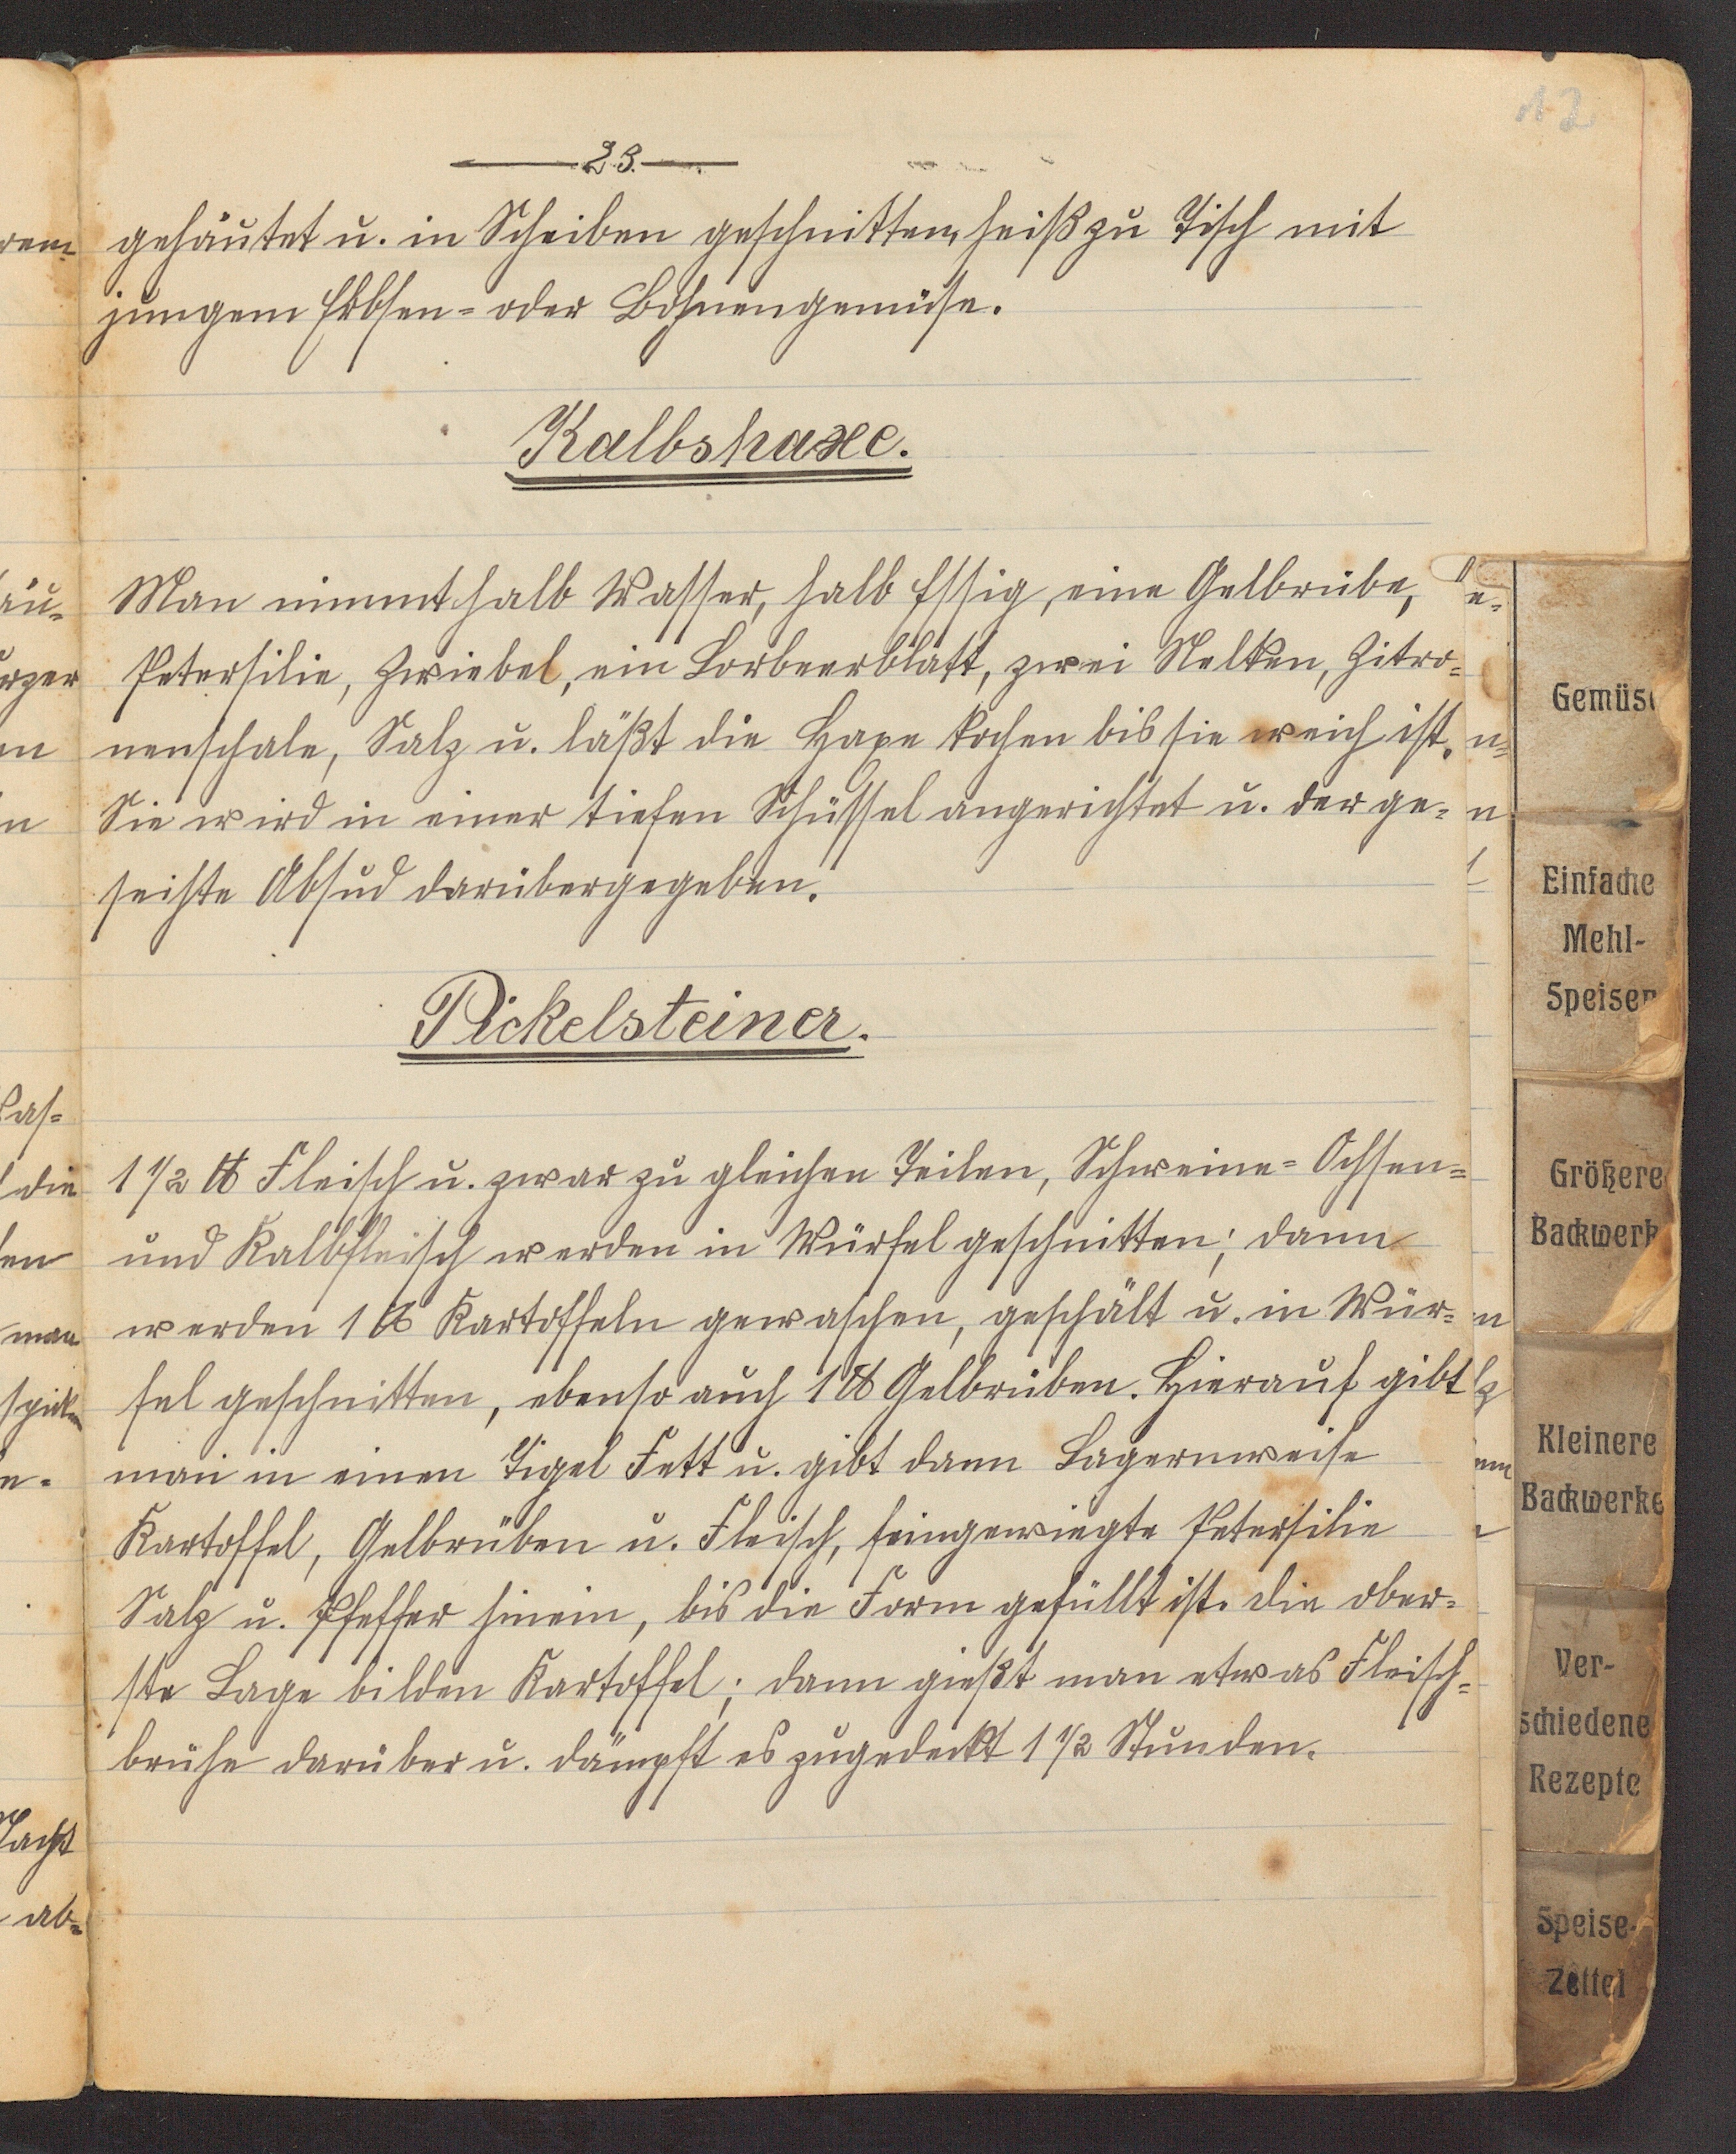 12
23.
gehäutet u. in Scheiben geschnitten, heiß zu Tisch mit
jungem Erbsen= oder Bohnengemüse.
Kalbshaxe.
Man nimmt halb Wasser, halb Essig, eine Gelbrübe,
Petersilie, Zwiebel, ein Lorbeerblatt, zwei Nelken, Zitro=
nenschale, Salz u. läßt die Haxe kochen bis sie weich ist.
Sie wird in einer tiefen Schüssel angerichtet u. der ge=
seihte Absud darübergegeben.
Pickelsteiner.
1 1/2 ℔ Fleisch u. zwar zu gleichen Teilen, Schweine= Ochsen=
und Kalbfleisch werden in Würfel geschnitten; dann
werden 1 ℔ Kartoffeln gewaschen, geschält u. in Wür=
fel geschnitten, ebenso auch 1 ℔ Gelbrüben. Hierauf gibt
man in einen Tigel Fett u. gibt dann Lagernweise
Kartoffel, Gelbrüben u. Fleisch, feingewiegte Petersilie
Salz u. Pfeffer hinein, bis die Form gefüllt ist. Die ober=
ste Lage bilden Kartoffel; dann gießt man etwas Fleisch=
brühe darüber u. dämpft es zugedeckt 1 1/2 Stunden.
Gemüse
Einfache
Mehl-
Speisen
Größere
Backwerk
Kleinere
Backwerke
Ver-
schiedene
Rezepte
Speise-
Zettel